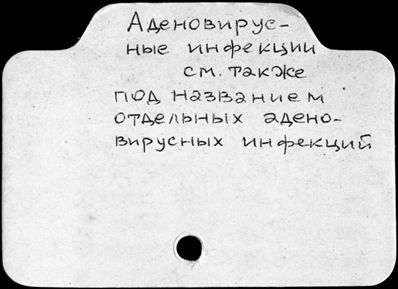 Аденовирус-
ные инфекции
см. также
под названием
отдельных адено-
вирусных инфекций